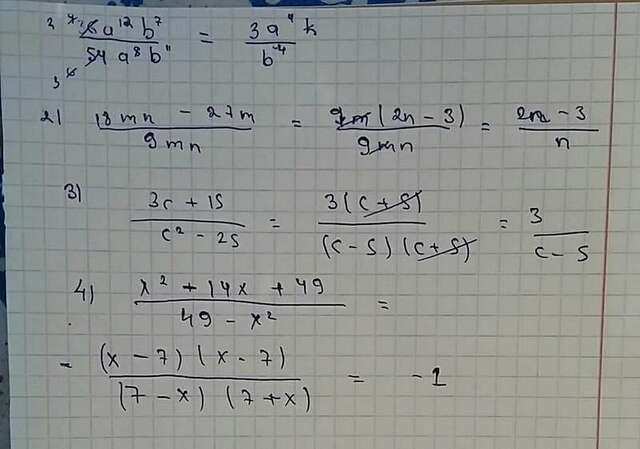 a¹² b⁷ / 54 a⁸ b¹¹ = 3a⁴ / b⁻⁴
2) 18mn - 27m / 9mn = 9m(2n - 3) / 9mn = 2n - 3 / n
3) 3c + 15 / c² - 25 = 3(c + 5) / (c - 5)(c + 5) = 3 / c - 5
4) x² + 14x + 49 / 49 - x² =
- (x - 7)(x - 7) / (7 - x)(7 + x) = -1